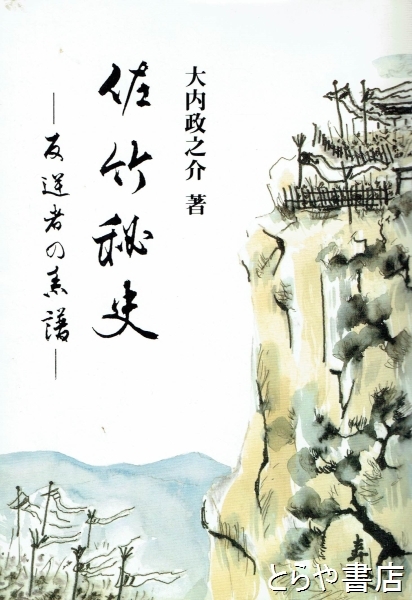 大内政之介 著
佐竹秘史
―反逆者の系譜―
とらや書店